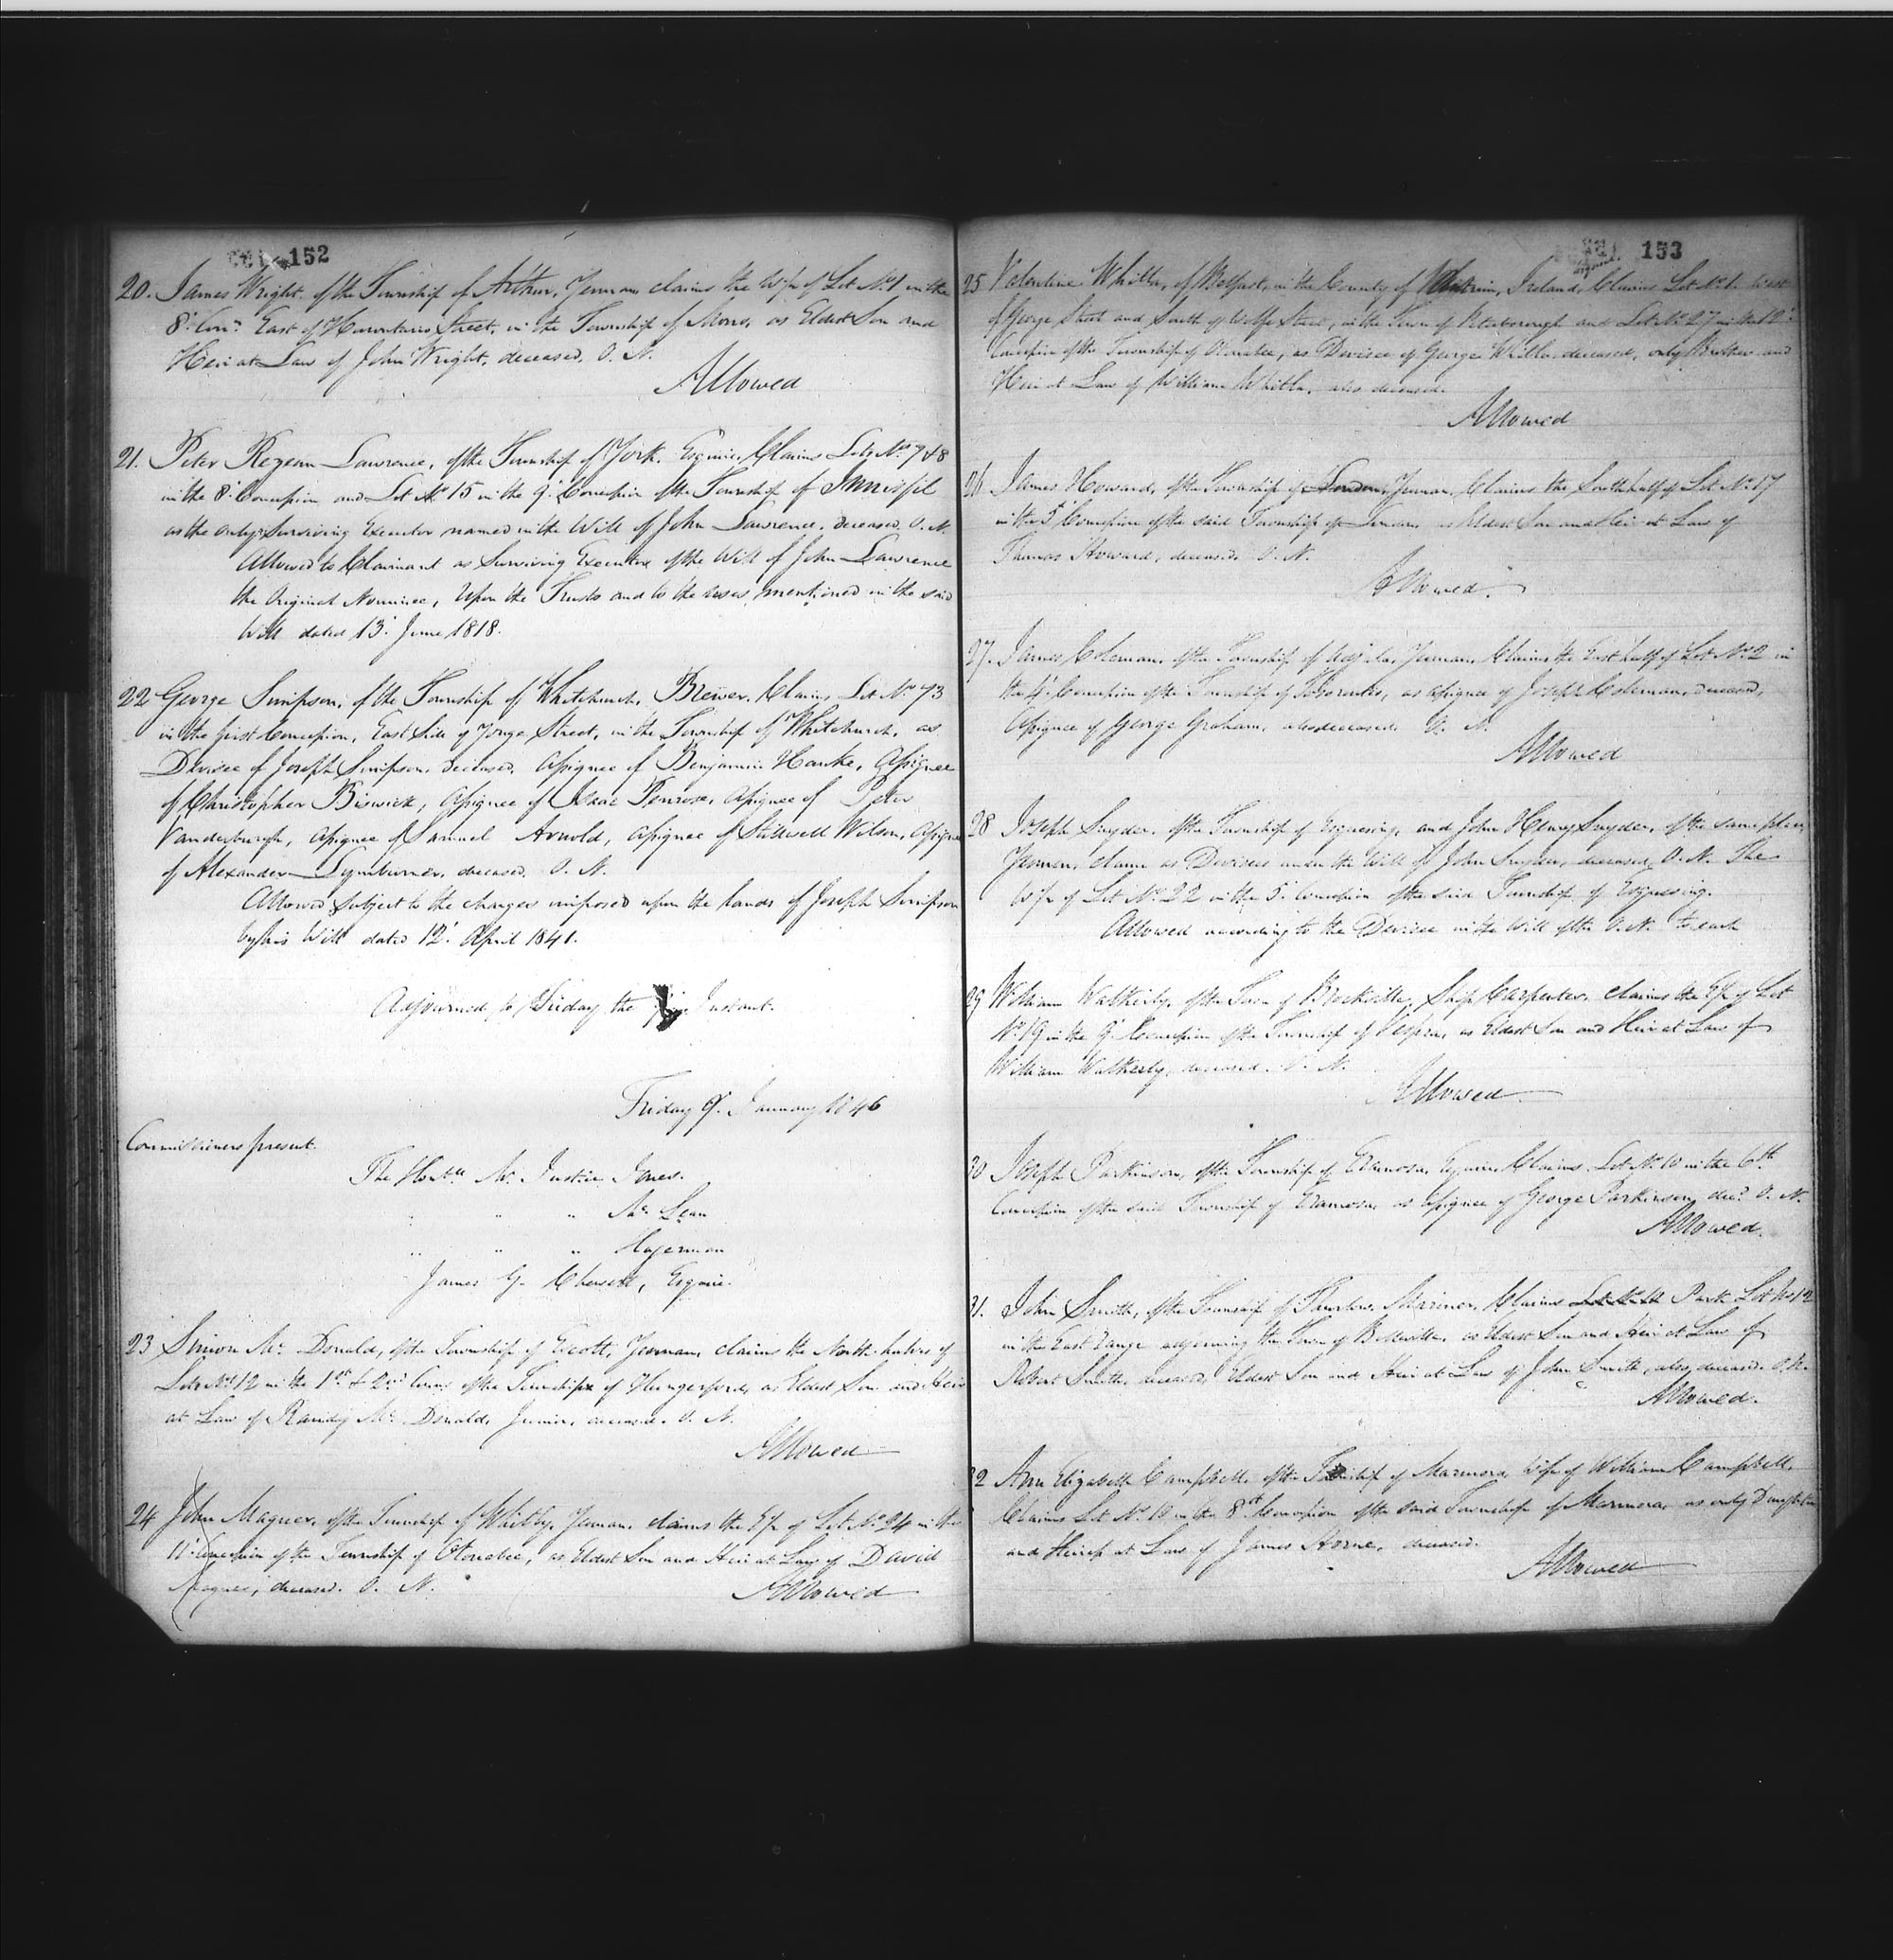 152
20. James Wright, of the Township of Arthur, Yeoman, claims the W/2 of Lot No 1 in the
8th Conn East of Hurontario Street, in the Township of Mono, as Eldest Son and
Heir at Law of John Wright, deceased. O. N.
Allowed
21. Peter Rezeau Lawrence, of the Township of York, Esquire, Claims Lots Nos 7 & 8
in the 8th Concession and Lot No 15 in the 9th Concession of the Township of Innisfil
as the only Surviving Executor named in the Will of John Lawrence, deceased, O. N.
Allowed to Claimant as Surviving Executor of the Will of John Lawrence
the Original Nominee, Upon the Trusts and to the uses mentioned in the said
Will dated 13th June 1818.
22 George Simpson, of the Township of Whitchurch, Brewer, Claims Lot No 93
in the first Concession, East Side of Yonge Street, in the Township of Whitchurch, as
Devisee of Joseph Simpson, deceased, Assignee of Benjamin Hawke, Assignee
of Christopher Biswick, Assignee of Isaac Penrose, Assignee of Peter
Vanderburgh, Assignee of Samuel Arnold, Assignee of Stillwell Wilson, Assignee
of Alexander Lymburner, deceased. O. N.
Allowed subject to the charges imposed upon the lands of Joseph Simpson
by his Will dated 12th April 1841.
Adjourned to Friday the Instant.
Friday 9th January 1846
Commissioners present.
The Honble Mr Justice Jones.
" " " McLean
" " " Hagerman
James G. Chewett, Esquire.
23 Simon McDonald, of the Township of Escott, Yeoman, claims the North halves of
Lots No 12 in the 1st & 2nd Cons of the Township of Hungerford, as Eldest Son and Heir
at Law of McDonald, Junior, deceased. O. N.
Allowed
24 John Magner, of the Township of Whitby, Yeoman, claims the E/2 of Lot No 24 in the
11th Concession of the Township of Otonabee, as Eldest Son and Heir at Law of David
Magner, deceased. O. N.
Allowed
153
25 Valentine Whitla, of Belfast, in the County of Antrim, Ireland, Claims Lot No 1. West
of George Street and South of Wolfe Street, in the Town of Peterborough and Lot No 27 in the 12th
Concession of the Township of Otonabee, as Devisee of George Whitla, deceased, only Brother and
Heir at Law of William Whitla, also deceased.
Allowed
26 James Howard, of the Township of London, Yeoman, Claims the South half of Lot No 17
in the 5th Concession of the said Township of London as Eldest Son and Heir at Law of
Thomas Howard, deceased. O. N.
Allowed.
27. James Coleman, of the Township of Yeoman, Claims the East half of Lot No 2 in
the 4th Concession of the Township of Toronto, as Assignee of Joseph Coleman, deceased,
Assignee of George Graham, also deceased. O. N.
Allowed
28 Joseph Snyder, of the Township of Esquesing, and John Henry Snyder, of the same place,
Yeomen, claim as Devisees under the Will of John Snyder, deceased, O. N. The
W/2 of Lot No 22 in the 5th Concession of the said Township of Esquesing.
Allowed according to the Devise in the Will of the O. N. to each
29 William Watherly, of the Town of Brockville, Ship Carpenter, claims the E/2 of Lot
No 19 in the 9th Concession of the Township of Vespra, as Eldest Son and Heir at Law of
William Watherly, deceased. O. N.
Allowed
30 Joseph Parkinson, of the Township of Eramosa, Esquire, Claims Lot No 10 in the 6th
Concession of the said Township of Eramosa, as Assignee of George Parkinson, decd O. N.
Allowed.
31. John Smith, of the Township of Thurlow, Mariner, Claims Park Lot No 12
in the East range adjoining the Town of Belleville, as Eldest Son and Heir at Law of
Robert Smith, deceased, Eldest Son and Heir at Law of John Smith, also deceased. O. N.
Allowed.
32 Ann Elizabeth Campbell, of the Township of Marmora, Wife of William Campbell,
Claims Lot No 10 in the 8th Concession of the said Township of Marmora, as only Daughter
and Heiress at Law of James Horne, deceased.
Allowed